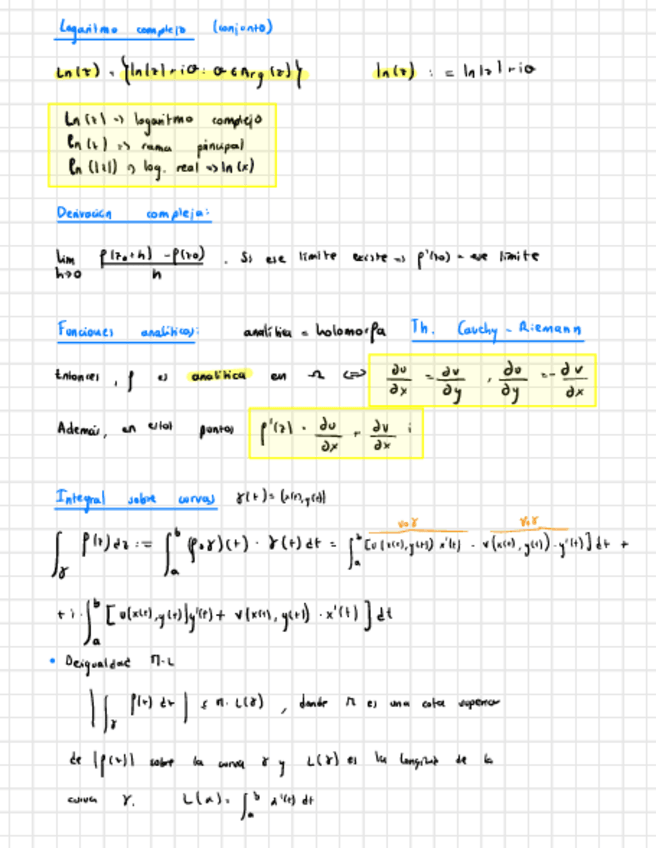 Logaritmo complejo (conjunto)
Ln(z) = {ln|z| + iθ : θ ∈ Arg(z)} ln(z) := ln|z| + iθ
Ln(z) => logaritmo complejo
ln(z) => rama principal
ln(|z|) => log. real => ln(x)
Derivación compleja:
lim h→0 f(z₀+h) - f(z₀) / h . Si ese límite existe => f'(z₀) = ese límite
Funciones analíticas: analítica = holomorfa Th. Cauchy - Riemann
Entonces, f es analítica en Ω <=> ∂u/∂x = ∂v/∂y , ∂u/∂y = - ∂v/∂x
Además, en estos puntos f'(z) = ∂u/∂x + ∂v/∂x i
Integral sobre curvas γ(t) = (x(t), y(t))
u∘γ v∘γ
∫γ f(z) dz := ∫ₐᵇ (f∘γ)(t) · γ(t) dt = ∫ₐᵇ [u(x(t), y(t)) x'(t) - v(x(t), y(t)) · y'(t)] dt +
+ i · ∫ₐᵇ [u(x(t), y(t)) y'(t) + v(x(t), y(t)) · x'(t)] dt
• Desigualdad M·L
|∫γ f(z) dz| ≤ M · L(γ) , donde M es una cota superior
de |f(z)| sobre la curva γ y L(γ) es la longitud de la
curva γ. L(a) = ∫ₐᵇ dt